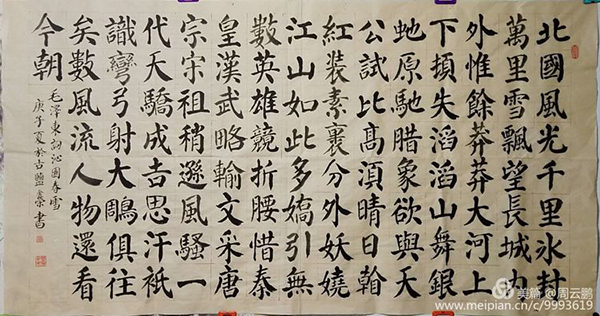 北國風光千里冰封
萬里雪飄望長城内
外惟餘莽莽大河上
下頓失滔滔山舞銀
虵原馳腊象欲與天
公試比高湏晴日
紅装素裹分外妖嬈
江山如此多嬌引無
數英雄競折腰惜秦
皇漢武略輸文采唐
宗宋祖稍遜風騷一
代天驕成吉思汗衹
識彎弓射大鵰俱往
矣數風流人物還看
今朝
毛澤東詞沁園春雪
庚子夏於古鹽 書
美篇 @周云鹏
www.meipian.cn/c/9993619